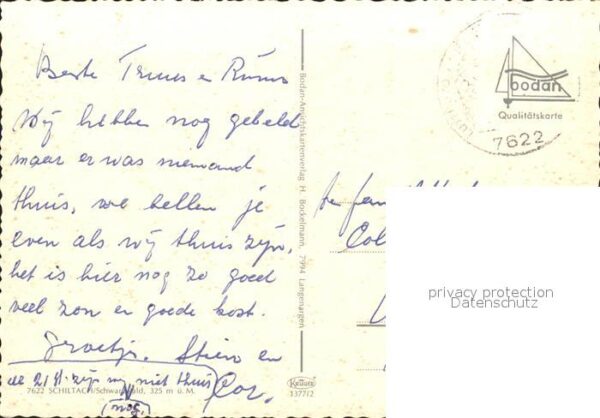 Beste Truus en Ruurs
Wij hebben nog gebeld
maar er was niemand
thuis, we bellen je
even als wij thuis zijn,
het is hier nog zo goed
veel zon en goede kost.
Groetjes. Stien en
Cor.
de 21 zijn wij niet thuis
nog
7622 SCHILTACH/Schwarzwald, 325 m ü. M.
Bodan-Ansichtskartenverlag H. Bockelmann, 7994 Langenargen
Kellutz
13771/2
bodan
Qualitätskarte
7622
De fam
Col
privacy protection
Datenschutz